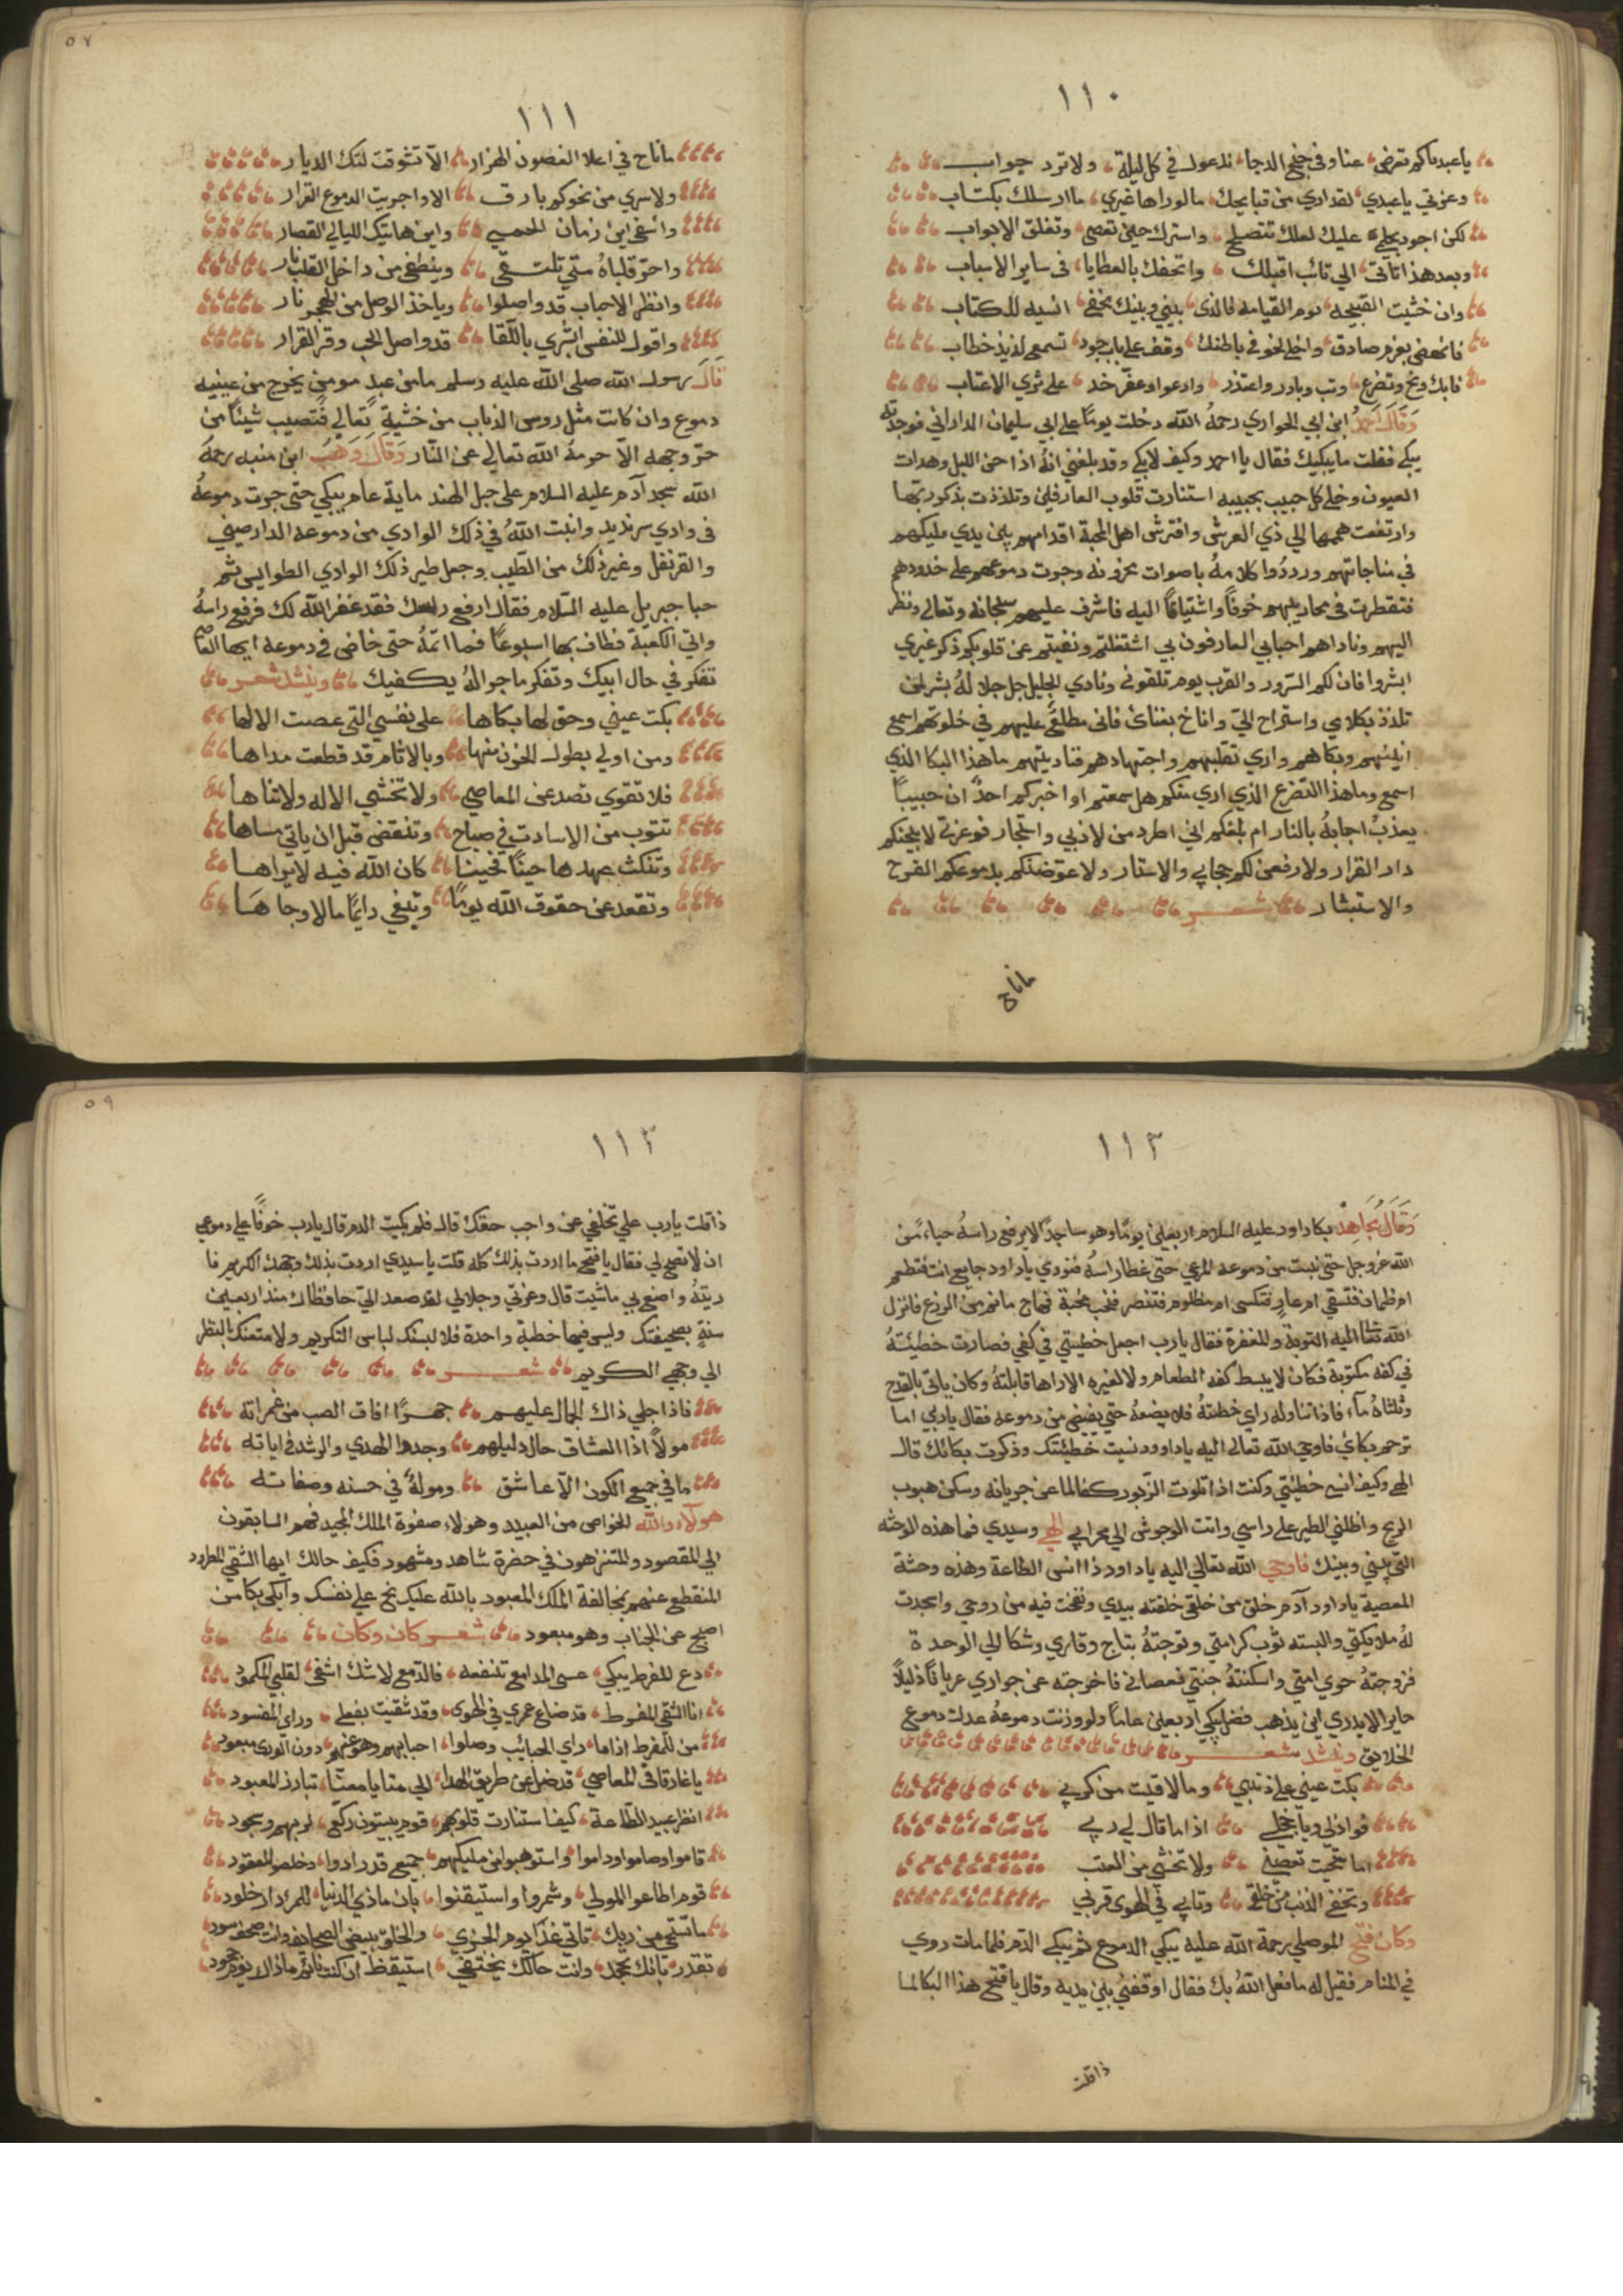 ١١٠
يا عبد ما كم تعرض عنا وفي جنح الدجا ندعوك في كل ليلة ولا ترد جواب
وعزتي يا عبدي لقد اري من قبايحك ما لو راها غيري ما ارسلك بكتاب
لكن اجود بحلمي عليك لعلك تنصلح واسترك حين تعصي وتغلق الابواب
وبعد هذا ان تاتي الي تائب اقبلك واتحفك بالعطايا في ساير الاسباب
وان خشيت القبيحه يوم القيامه فالذي بيني وبينك يخفي انسيه للكتاب
فانهض بعزم صادق واخلي لخوفي باطنك وقف علي باب جود تسمع لذيذ خطاب
فابك ونح وتضرع وتب وبادر واعتذر وادعوا وعفر خد علي ثري الاعتاب
وقال احمد ابن ابي الحواري رحمه الله دخلت يوما علي ابي سليمان الداراني فوجدته
يبكي فقلت ما يبكيك فقال يا احمد وكيف لا ابكي وقد بلغني انه اذا جن الليل وهدات
العيون وخلي كل حبيب بحبيبه استنارت قلوب العارفين وتلذذت بذكر ربها
وارتفعت هممها الي ذي العرش وافترش اهل المحبة اقدامهم بين يدي مليكهم
في مناجاتهم ورددوا كلامه باصوات محزونه وجرت دموعهم علي خدودهم
فتقطرت في محاريبهم خوفا واشتياقا اليه فاشرف عليهم سبحانه وتعالي ونظر
اليهم وناداهم احبابي العارفون بي اشتغلتم ونفيتم عن قلوبكم ذكر غيري
ابشروا فان لكم السرور والقرب يوم تلقوني ونادي الجليل جل جلاله بشر لمن
تلذذ بكلامي واستراح الي واناخ بفنائ فاني مطلع عليهم في خلوتهم اسمع
انينهم وبكاهم واري تقلبهم واجتهادهم فناديتهم ما هذا البكا الذي
اسمع وما هذا التضرع الذي اري منكم هل سمعتم او اخبركم احد ان حبيبا
يعذب احبابه بالنار ام بلغكم اني اطرد من لاذ بي واستجار فوعزتي لابيحنكم
دار القرار ولارفعن لكم حجابي والاستار ولاعوضنكم بدموعكم الفرح
والاستبشار شعر
ما ناح
١١١
ما ناح في اعلا الغصون الهزار الا تشوقت لتلك الديار
ولا سري من نحوكم بارق الا واجريت الدموع الغزار
وا اسفي اين زمان الحمي واين هاتيك الليالي القصار
واحر قلباه متي نلتقي وينطفي من داخل القلب نار
وانظر الاحباب قد واصلوا وياخذ الوصل من الهجر ثار
واقول للنفس ابشري باللقا قد واصل الحب وقر القرار
قال رسول الله صلي الله عليه وسلم ما من عبد مومن يخرج من عينيه
دموع وان كانت مثل روس الذباب من خشية تعالي فتصيب شيئا من
حر وجهه الا حرمه الله تعالي عن النار وقال وهب ابن منبه رحمه
الله سجد آدم عليه السلام علي جبل الهند ماية عام يبكي حتي جرت دموعه
في وادي سرنديب وانبت الله في ذلك الوادي من دموعه الدارصيني
والقرنفل وغير ذلك من الطيب وجعل طير ذلك الوادي الطواليس ثم
جبا جبريل عليه السلام فقال ارفع راسك فقد غفر الله لك فرفع راسه
واتي الكعبة فطاف بها اسبوعا فما اتمه حتي خاض في دموعه ايها العاصي
تفكر في حال ابيك وتفكر ما جراله يكفيك وينشد شعر
بكت عيني وحق لها بكاها علي نفسي التي عصت الالها
ومن اولي بطول الحزن منها وبالاثام قد قطعت مداها
فلا تقوي تصد عن المعاصي ولا تخشي الاله ولا تناها
تتوب من الاسات في صباح وتنقض قبل ان ياتي مساها
وتنكث عهدها حينا فحينا كان الله فيه لا يراها
وتقعد عن حقوق الله يوما وتبغي دايما مالا وجاها
١١٢
وقال مجاهد بكا داود عليه السلام اربعين يوما وهو ساجدا لا يرفع راسه حياء من
الله عز وجل حتي نبت من دموعه المرعي حتي غطا راسه فنودي يا داود جايع انت فتطعم
ام ظمان فتسقي ام عار فتكسي ام مظلوم فتنصر فنحب نحبة فهاج ما ثم من الزرع فانزل
الله تعا اليه التوبة والمغفرة فقال يا رب اجعل خطيتي في كفي فصارت خطيئته
في كفه مكتوبة فكان لا يبسط كفه الطعام ولا لغيره الا راها قابلته وكان ياتي بالقدح
وثلثاه ماء فاذا تناوله راي خطيئته فلا يضعه حتي يفيض من دموعه فقال يا ربي اما
ترحم بكائ فاوحي الله تعالي اليه يا داوود نسيت خطيئتك وذكرت بكائك قال
الهي وكيف انسي خطيئتي وكنت اذا تلوت الزبور كف الما عن جريانه وسكن هبوب
الريح واظلني الطير علي راسي وانت الوحوش الي محرابي الهي وسيدي فما هذه الوحشه
التي بيني وبينك فاوحي الله تعالي اليه يا داود ذا انس الطاعة وهذه وحشة
المعصية يا داود آدم خلق من خلقي خلقته بيدي ونفخت فيه من روحي واسجدت
له ملايكتي والبسته ثوب كرامتي وتوجته بتاج وقاري وشكا الي الوحدة
فزوجته حوي امتي واسكنته جنتي فعصاني فاخرجته عن جواري عريانا ذليلا
حاير الا يدري اين يذهب فضل يبكي اربعين عاما ولو وزنت دموعه عدلت دموع
الخلايق وينشد شعر
بكت عيني علي ذنبي وما لاقيت من كربي
فوا ذلي ويا خجلي اذا ما قال لي ربي
اما استحيت تعصيني ولا تخشي من العتب
وتخفي الذنب من خلقي وتابي في الهوي قربي
وكان فتح الموصلي رحمة الله عليه يبكي الدموع ثم يبكي الدم فلما مات روي
في المنام فقيل له ما فعل الله بك فقال اوقفني بين يديه وقال يا فتح هذا البكا لما
ذا قلت
١١٣
ذا قلت يا رب علي تخلفي عن واجب حقك قال فلم بكيت الدم قال يا رب خوفا علي دموعي
ان لا تصح لي فقال يا فتح ما اردت بذلك كله قلت يا سيدي اردت بذلك وجهك الكريم فا
ريته واصنع بي ما شيت قال وعزتي وجلالي لقد صعد الي حافظاك منذ اربعين
سنة بصحيفتك وليس فيها خطية واحدة فلالبسنك لباس التكريم ولامتعنك بالنظر
الي وجهي الكريم شعر
فاذا جلي ذاك الجمال عليهم جهرا افاق الصب من غمراته
مولا اذا العشاق حال دليلهم وجدوا الهدي والرشد في اياته
ما في جميع الكون الا عاشق وموله في حسنه وصفاته
هولاء والله الخواص من العبيد وهولاء صفوة الملك المجيد فهم السابقون
الي المقصود والمتنزهون في حضرة شاهد ومشهود فكيف حالك ايها الشقي المطرود
المنقطع عنهم بمخالفة الملك المعبود بالله عليك نح علي نفسك وابكي بكا من
اصبح عن الجناب وهو مبعود شعر كان وكان
دع المفرط يبكي عسي المدامع تنفعه فالدمع لا شك اشفي لقلبي المكمود
انا الشقي المفرط قد ضاع عمري في الهوي وقد شقيت بفعلي وراي المفسود
من للمفرط اذا ما راي الحبائب وصلوا احبابهم وهو عنهم دون الوري مبعود
يا غارقا في المعاصي قد ضل عن طريق الهدا الي متا يا معنا تبارز المعبود
انظر عبيد الطاعة كيفا استنارت قلوبهم قوم يبيتون ركع لربهم وسجود
قاموا وصاموا وداموا واستوهبوا من مليكهم جميع قد رادوا وخلصوا المعقود
قوم اطاعوا المولي وشمروا واستيقنوا بان ما ذي الدنيا للمرء دار خلود
ما تستحي من ربك تاتي غدا يوم الجزي والخلق ببيض الصحايف وانت صحفك سود
تقدر بانك تجحد وانت حالك يختفي استيقظ ان كنت نائم ما ذا الا يوم جحود